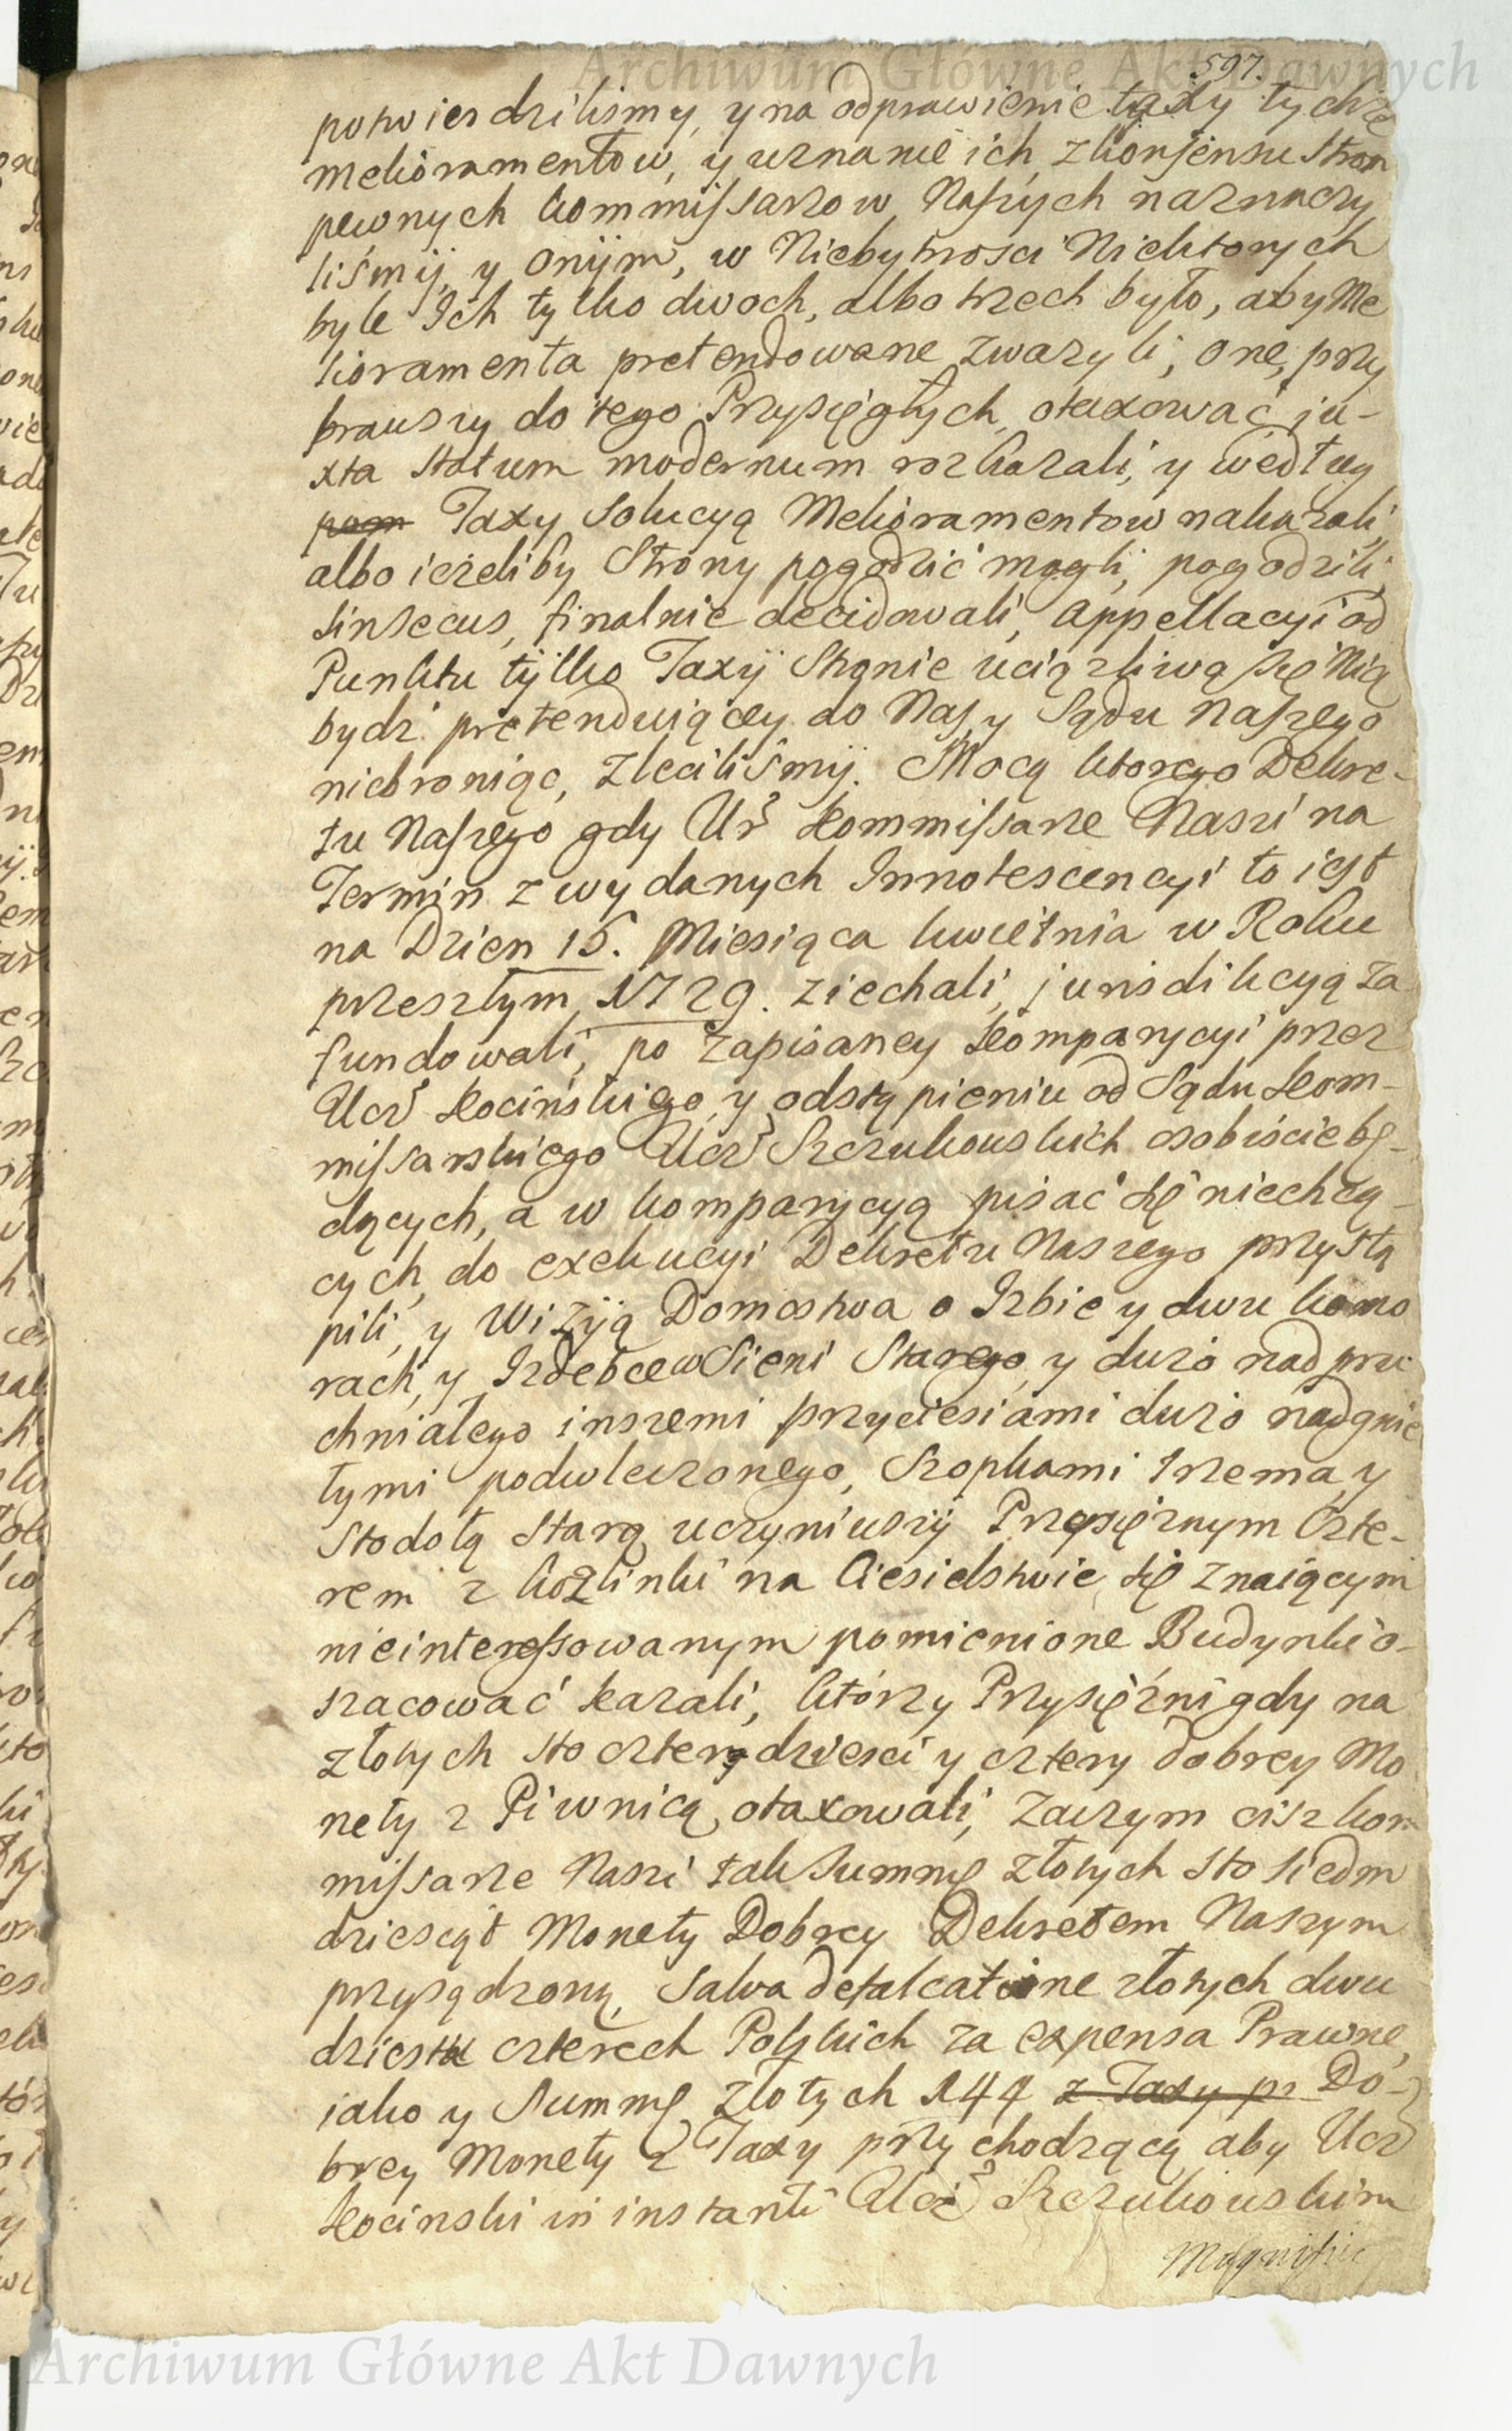 Archiwum Główne Akt Dawnych
597.
potwierdziliśmy, y na odprawienie taxy tychże
melioramentow, y uznanie ich, z konsensu Stron
pewnych kommissarzow Naszych naznaczy
liśmy, y onym, w Niebytnosci Niektorych
byle Ich tylko dwoch, albo trzech było, aby Me
lioramenta pretendowane zwazyli, one, przy
brawszy do tego Przysięgłych, otaxować ju-
xta statum modernum rozkazali, y według
Taxy Solucyą Melioramentow nakazali,
albo ieżeliby Strony pogodzić mogli, pogodzili,
sinsecus, finalnie decidowali, appellacyi od
Punktu tylko Taxy Stronie uciązliwą się Nią
bydź pretenduiącey do Nas, y Sądu Naszego
niebroniąc, zleciliśmy. Mocą ktorego Dekre-
tu Naszego gdy Ur Kommissarze Naszi na
Termin z wydanych Innotescencyi to iest
na Dzien 15. Miesiąca kwietnia w Roku
przeszłym 1729. ziechali, jurisdikcyą za
fundowali, po zapisaney Komparycyi przez
Ucz Kocińskiego, y odstąpieniu od Sądu Kom-
missarskiego Ucz Szczukowskich osobiście bę-
dących, a w komparycyą pisać się niechcą-
cych, do exekucyi Dekretu Naszego przystą
pili, y Wizyą Domostwa o Izbie y dwu komo
rach, y Izdebce w Sieni Starego, y duzo nadpru
chniałego inszemi przyciesiami duzo nadgnie
tymi podwleczonego, Szopkami trzema, y
Stodołą starą uczyniwszy Przysiężnym Czte-
rem z Kozlinki na Ciesielstwie się znaiącym
nieinteressowanym pomienione Budynki o-
szacować kazali, którzy Przysięźni gdy na
złotych sto czterydzieści y cztery dobrey Mo
nety z Piwnicą otaxowali, zaczym ciż kom
missarze Naszi tak Summę złotych sto siedm
dziesiąt Monety Dobrey Dekretem Naszym
przysądzoną, salva defalcatione złotych dwu
dziestu czterech Polskich za expensa Prawne,
iako y Summę złotych 144 z Taxy pr Do-
brey Monety z Taxy przychodzącą aby Ucz
Kocinski in instanti Ucz Szczukowskim
Archiwum Główne Akt Dawnych